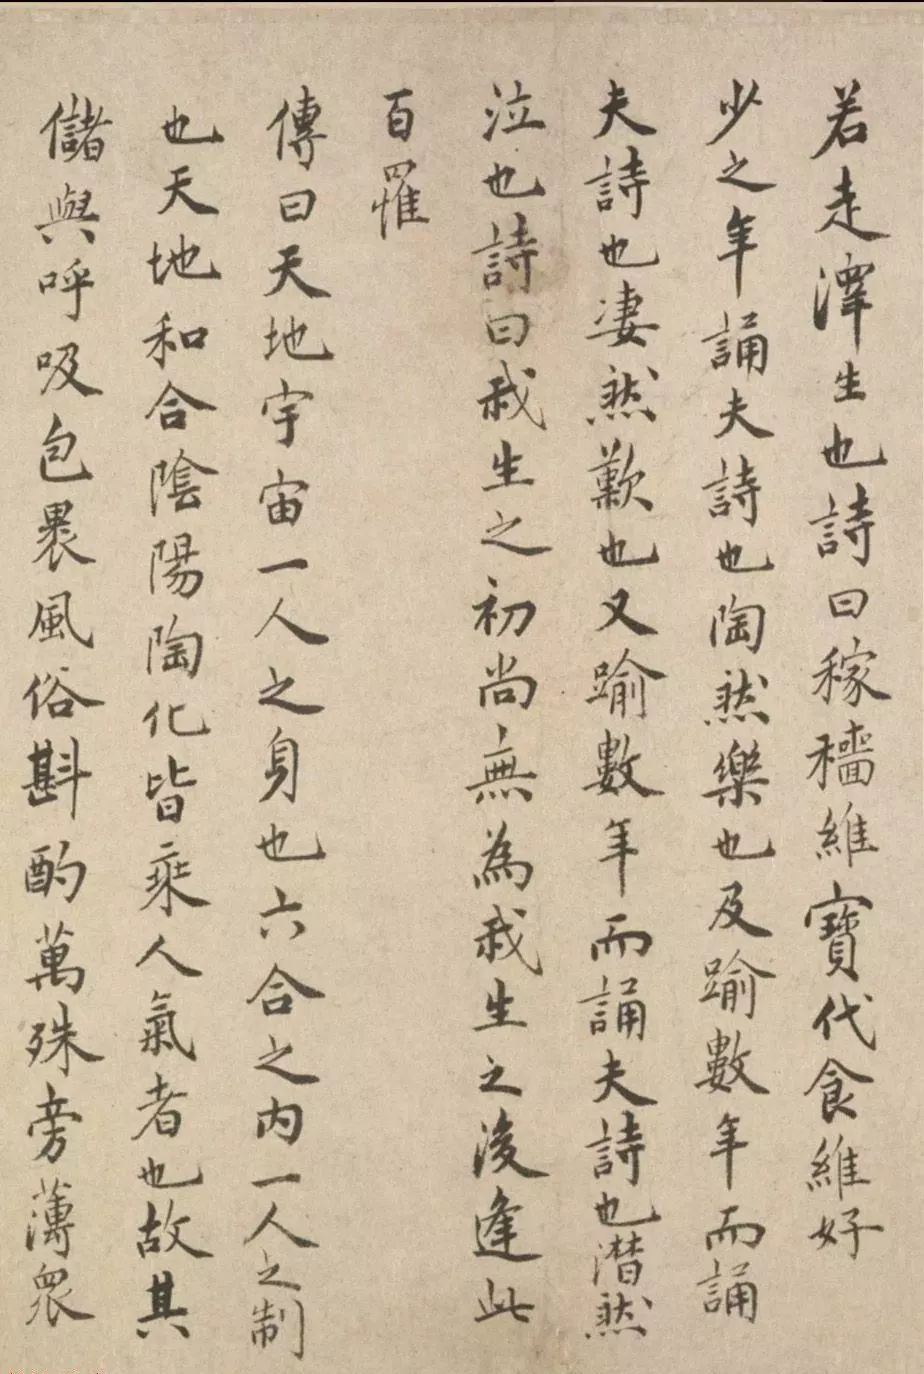 若走澤生也詩曰稼穡維寶代食維好
少之年誦夫詩也陶然樂也及踰數年而誦
夫詩也凄然歎也又踰數年而誦夫詩也潸然
泣也詩曰我生之初尚無為我生之後逢此
百罹
傳曰天地宇宙一人之身也六合之内一人之制
也天地和合陰陽陶化皆乘人氣者也故其
儲與呼吸包裹風俗斟酌萬殊旁薄衆